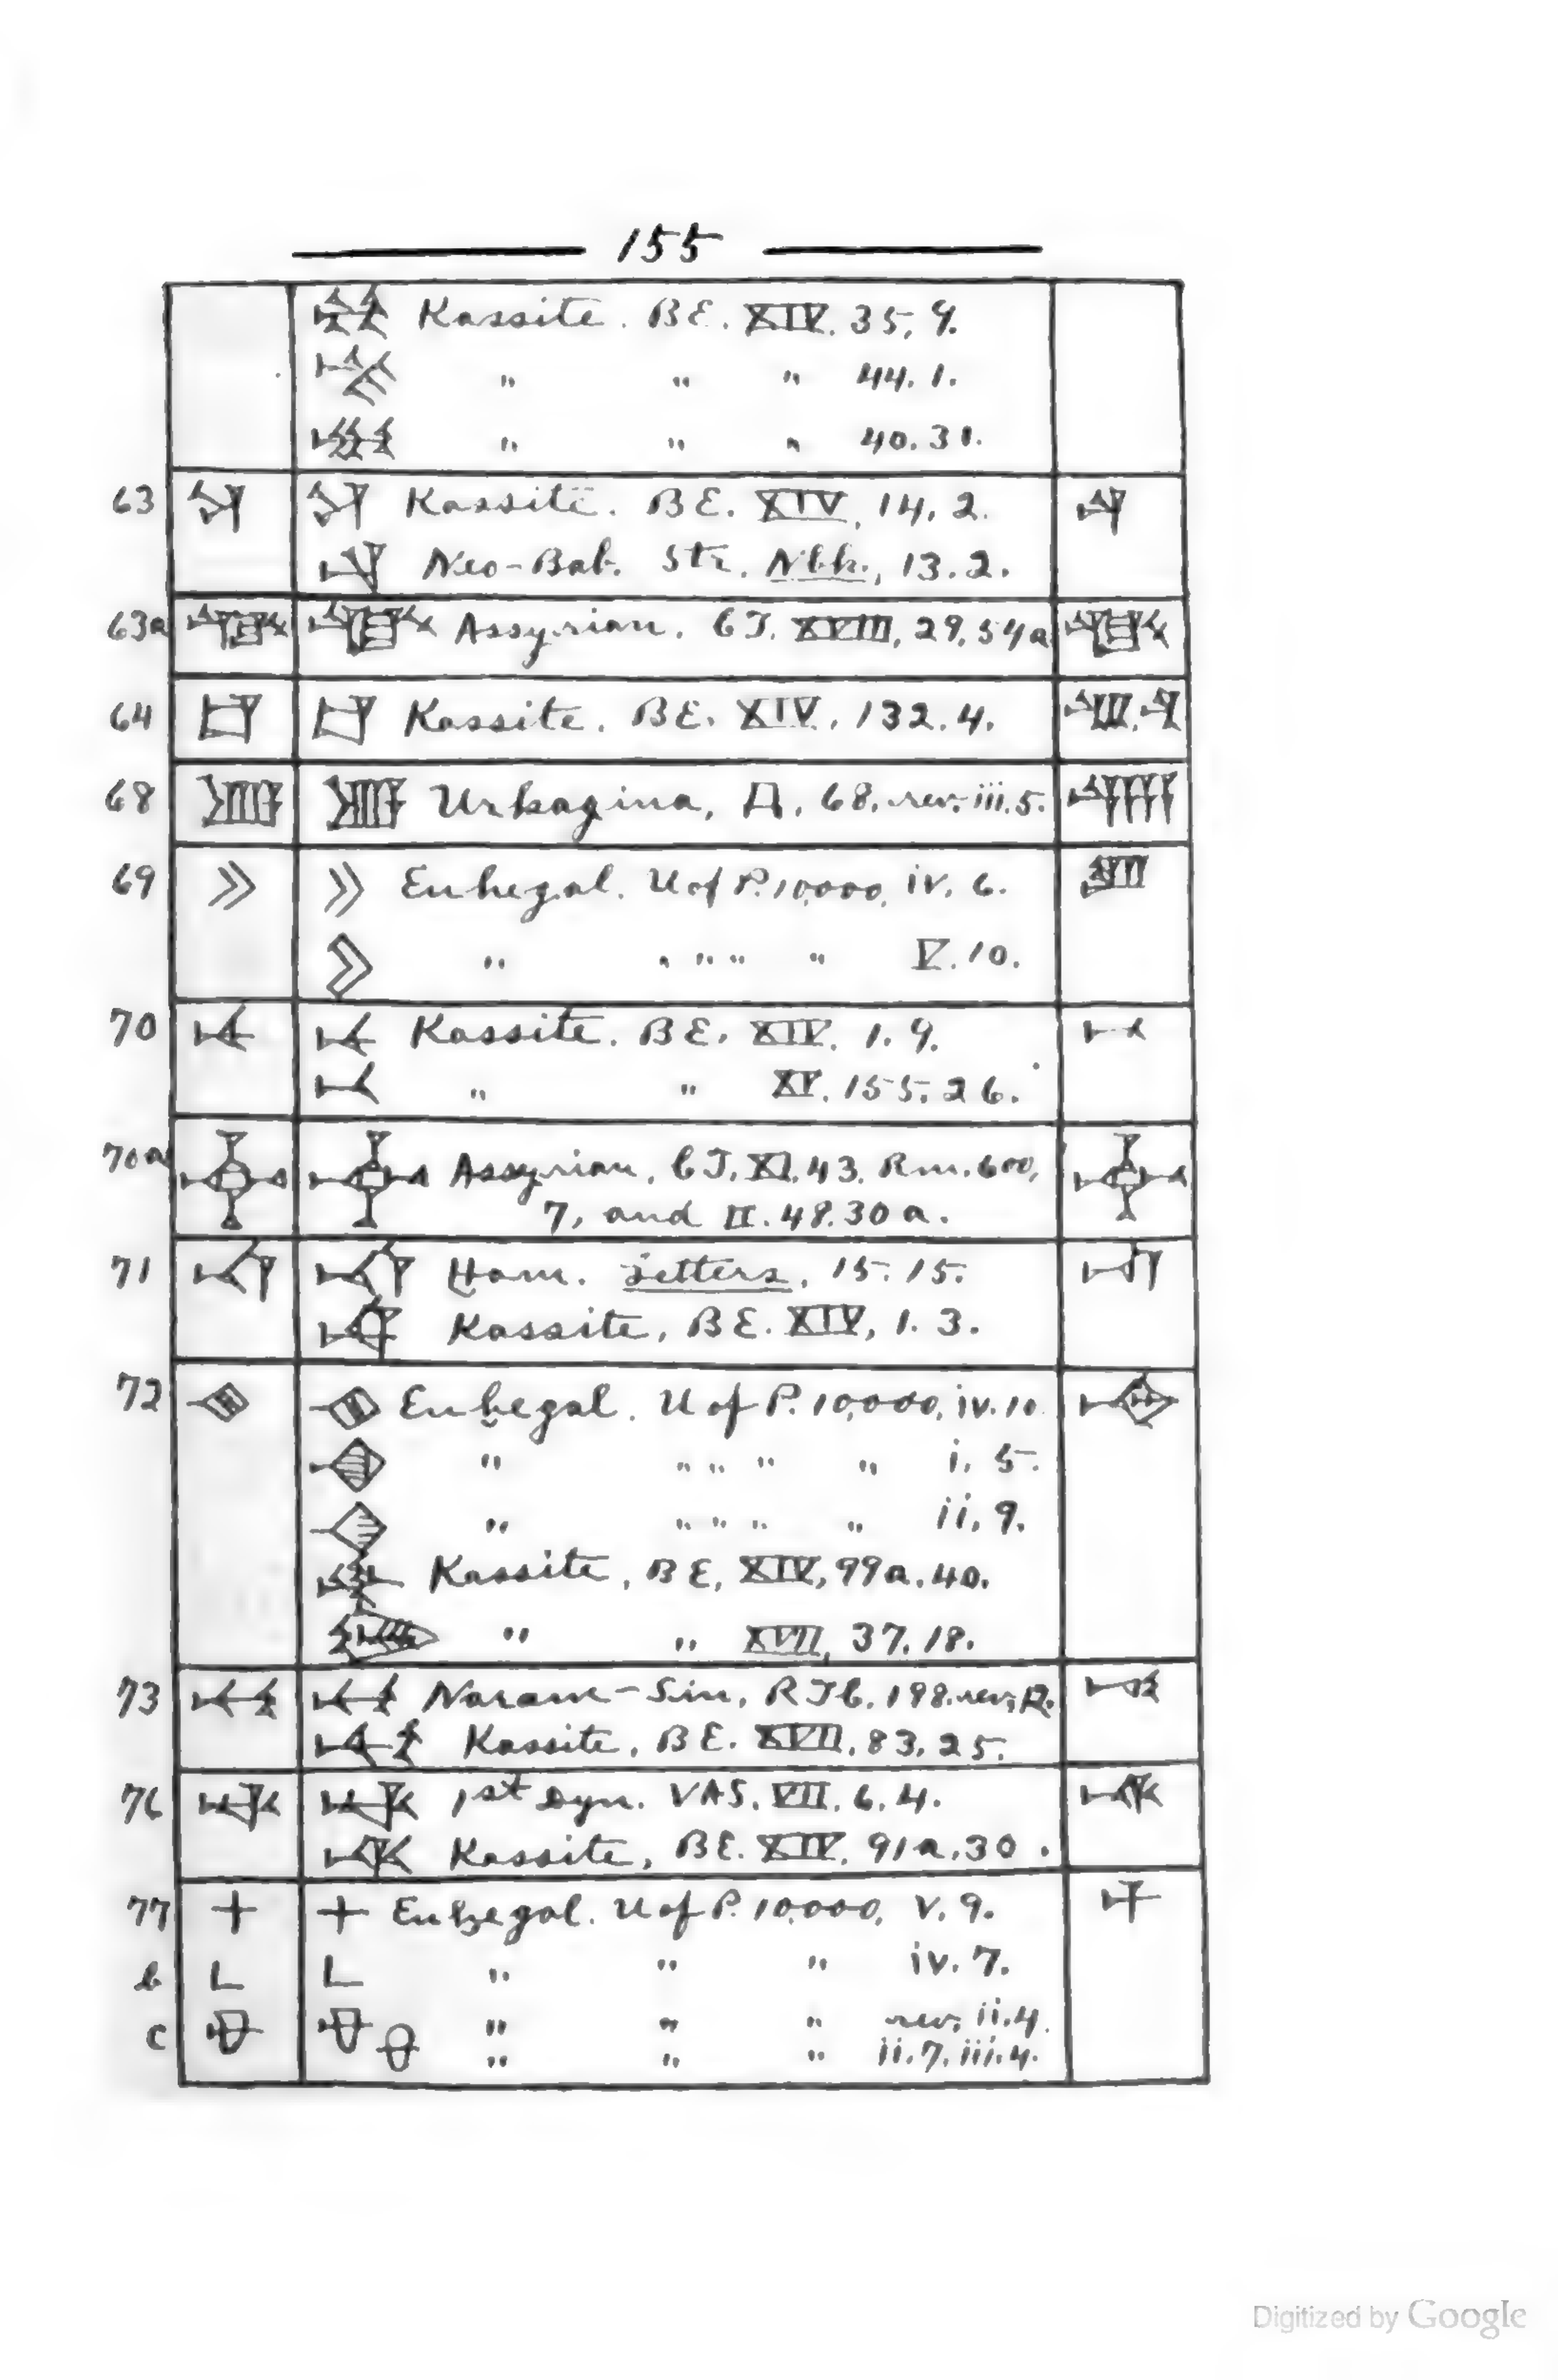 155
Kassite. BE. XIV. 35, 9.
" " " 44. 1.
" " " 40. 31.
63 Kassite. BE. XIV, 14, 2.
Neo-Bab. Str. Nbk., 13. 2.
63a Assyrian. CT. XVIII, 29, 54a
64 Kassite. BE. XIV, 132. 4.
68 Urkagina, 68. rev. iii. 5.
69 Enhegal. U of P. 10,000, iv. 6.
" " " " " V. 10.
70 Kassite. BE. XIV. 1. 9.
" " XV. 155, 26.
70a Assyrian. CT. XI. 43. Rm. 600,
7, and II. 48. 30 a.
71 Ḫam. Letters, 15. 15.
Kassite, BE. XIV, 1. 3.
72 Enḫegal. U of P. 10,000, iv. 10
" " " " " i. 5.
" " " " " ii, 9.
Kassite, BE, XIV, 99a. 40.
" " XVII, 37. 18.
73 Naram-Sin, RTC. 198. rev.
Kassite, BE. XVII, 83, 25.
76 1st Dyn. VAS. VII. 6. 4.
Kassite, BE. XIV, 91a. 30.
77 + + Enḫegal. U of P. 10,000, V. 9.
b L L " " " iv. 7.
c " " " rev. ii. 4.
" " " ii. 7. iii. 4.
Digitized by Google